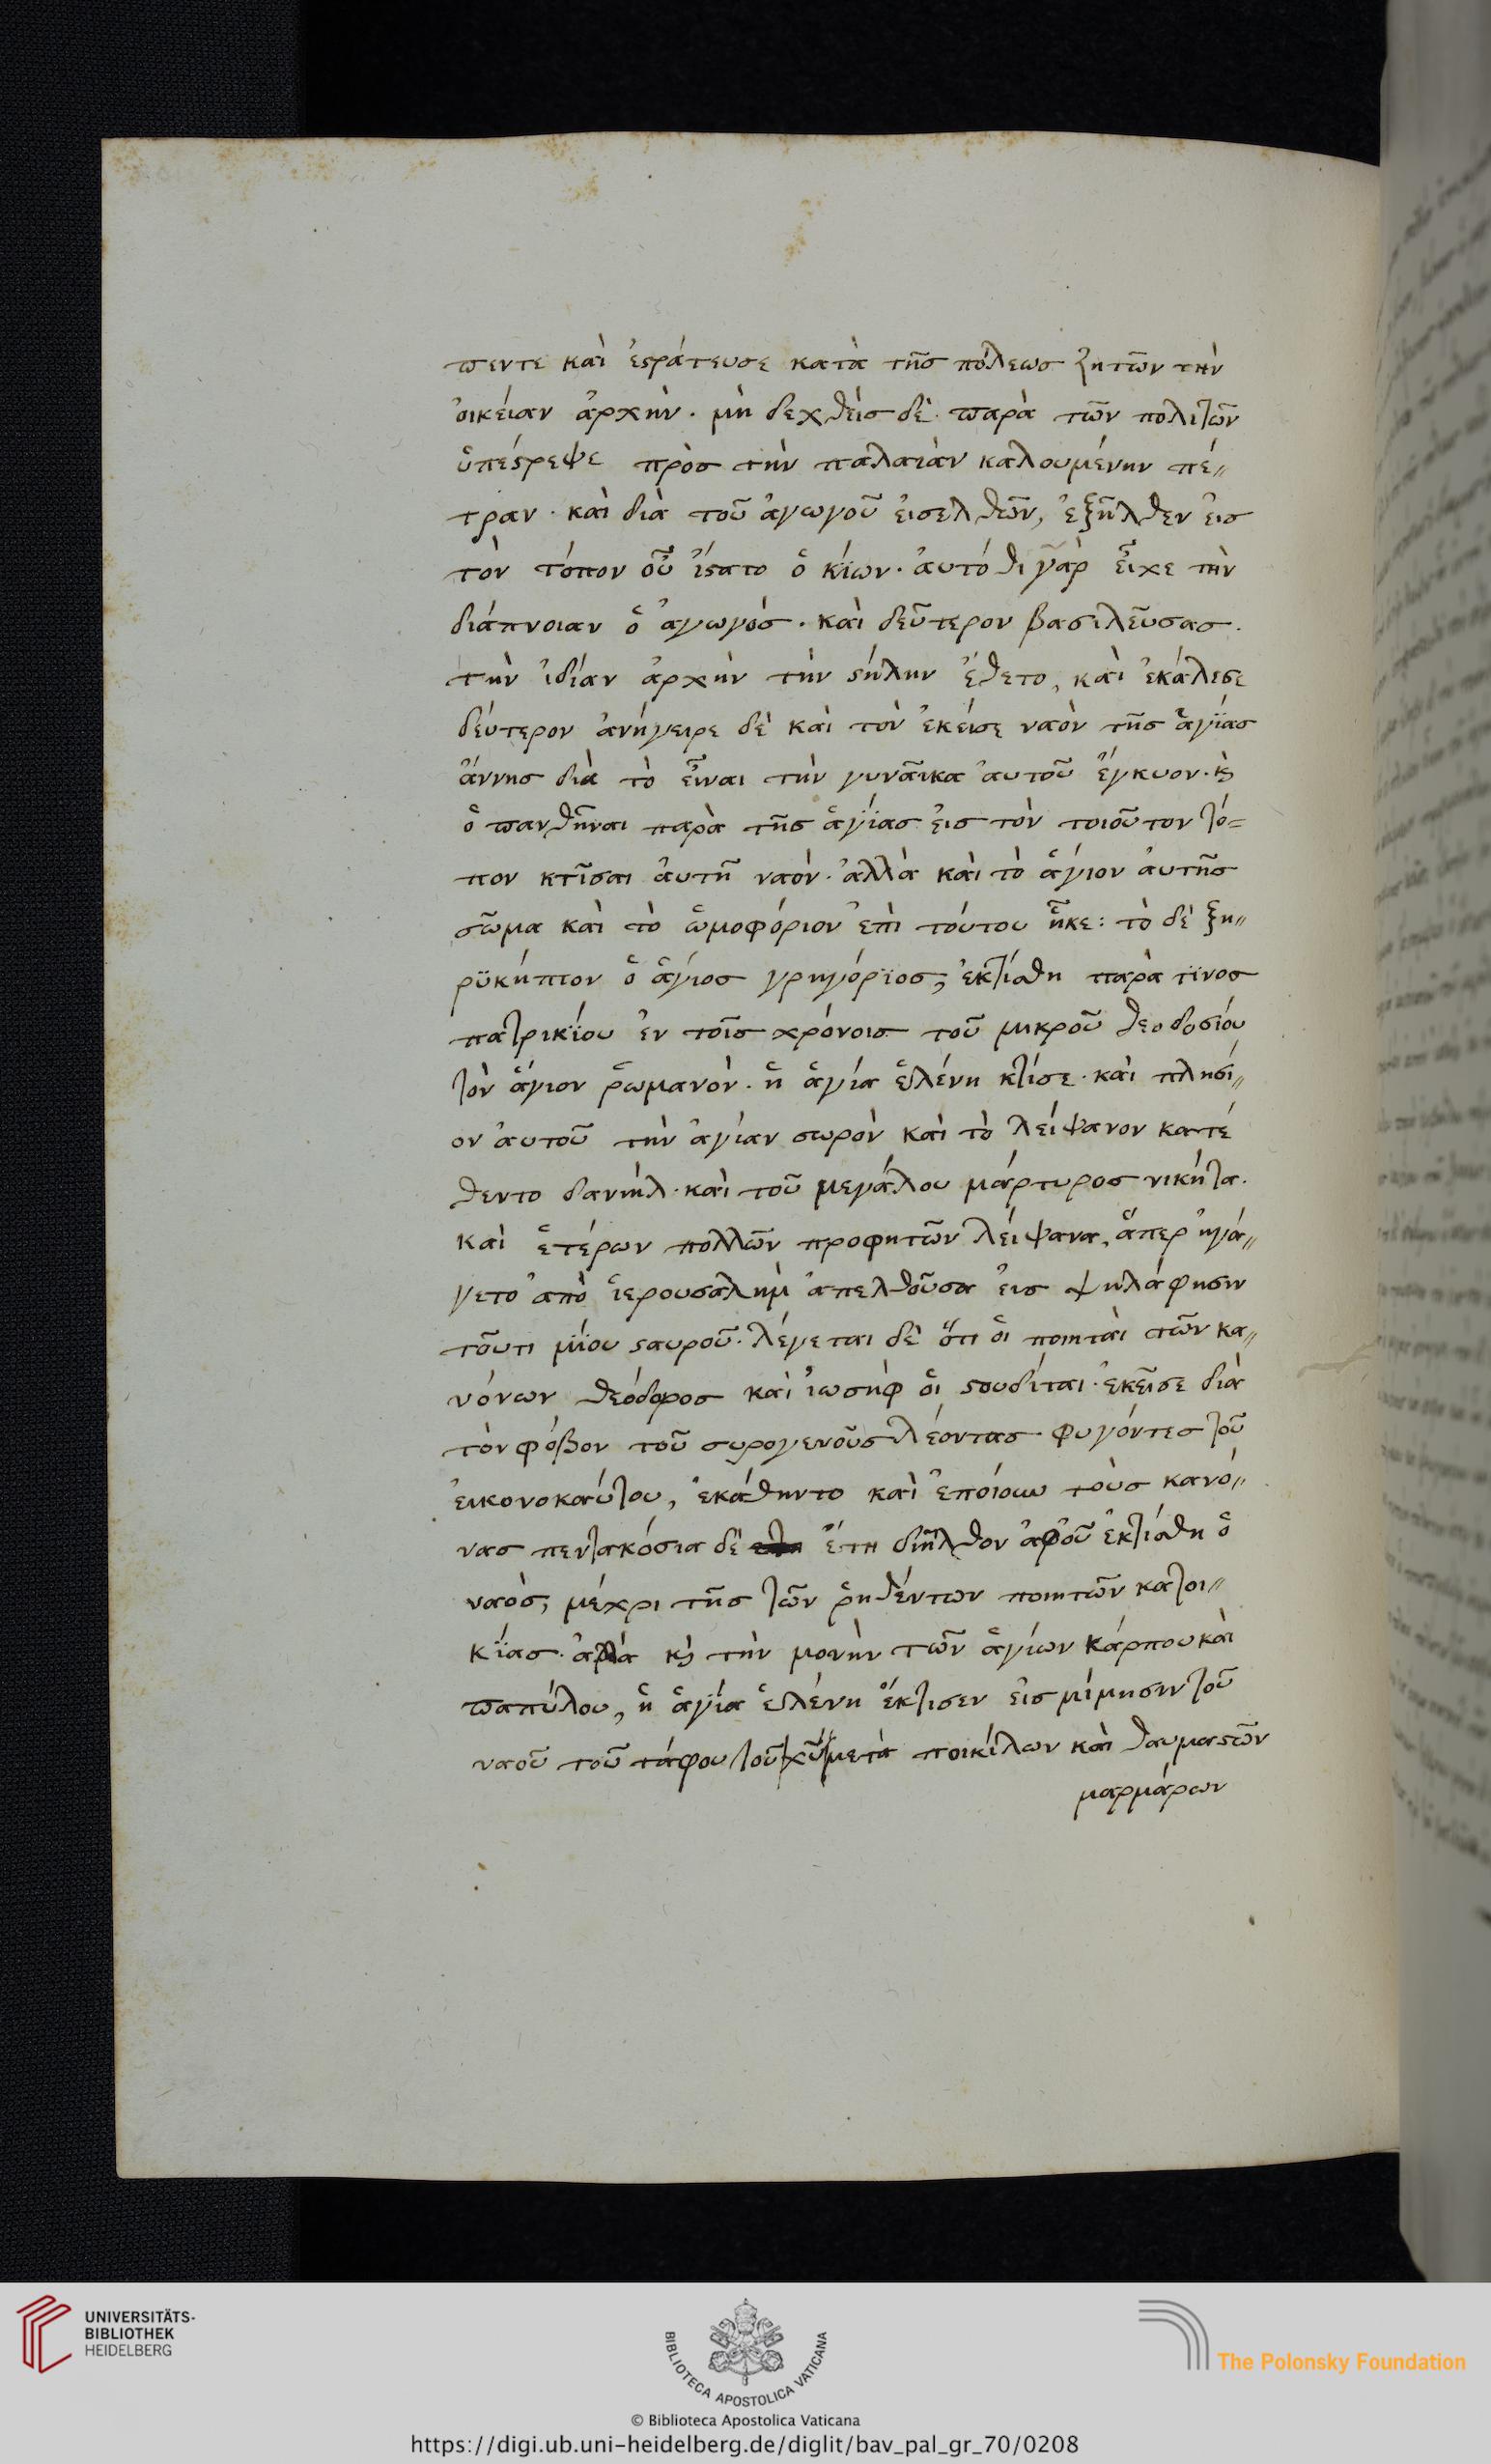 πεντε καὶ ἐστράτευσε κατὰ τῆς πόλεως ζητῶν τὴν
ὀικείαν ἀρχὴν. μὴ δεχθεὶς δὲ παρὰ τῶν πολιτῶν
ὑπέστρεψε πρὸς τὴν παλαιὰν καλουμένην πέ„
τραν. καὶ διὰ τοῦ ἀγωγοῦ ἐισελθῶν, ἐξῆλθεν ἐις
τὸν τόπον οὗ ἵστατο ὁ κίων. ἀυτόθι γὰρ εἶχε τὴν
διάπνοιαν ὁ ἀγωγός. καὶ δεῦτερον βασιλεῦσας.
τὴν ἰδίαν ἀρχὴν τὴν στήλην ἔθετο, καὶ ἐκάλεσε
δεύτερον ἀνήγειρε δὲ καὶ τὸν ἐκεῖσε ναὸν τῆς ἁγίας
ἄννης διὰ τὸ εἶναι τὴν γυναῖκα ἀυτοῦ ἔγκυον. κὶ
ὁπανθῆναι παρὰ τῆς ἁγίας ἐις τὸν τοιοῦτον τό=
πον κτῖσαι ἀυτῆ ναὸν. ἀλλὰ καὶ τὸ ἅγιον ἀυτῆς
σῶμα καὶ τὸ ὡμοφόριον ἐπὶ τούτου ἧκε: τὸ δὲ ξη„
ρϋκήπιον ὁ ἅγιος γρηγόριος, ἐκτίσθη παρὰ τϊνος
πατρικίου ἐν τοῖς χρόνοις τοῦ μικροῦ θεοδοσίου
τὸν ἅγιον ῥωμανὸν. ἡ ἁγία ἑλένη κτίσε. καὶ πλησί„
ον ἀυτοῦ τὴν ἁγίαν σωρὸν καὶ τὸ λείψανον κατέ
θεντο δανιήλ. καὶ τοῦ μεγάλου μάρτυρος νικήτα.
καὶ ἑτέρων πολλῶν προφητῶν λείψανα, ἅπερ ἠγά„
γετο ἀπὸ ἱερουσαλὴμ ἀπελθοῦσα ἐις ψηλάφησιν
τοῦτιμίου σταυροῦ. λέγεται δὲ ὅτι ὁι ποιηταὶ τῶν κα„
νόνων θεόδορος καὶ ἰωσὴφ ὁι στουδίται. ἐκεῖσε διὰ
τὸν φόβον τοῦ συρογενοῦς λέοντας φυγόντες τοῦ
ἐικονοκαύτου, ἐκάθηντο καὶ ἐποίουν τοὺς κανό„
νας πεντακόσια δὲ ἔτη διῆλθον ἀφοῦ ἐκτίσθη ὁ
ναὸς, μέχρι τῆς τῶν ῥηθέντων ποιητῶν κατοι„
κίας. ἀλλὰ κὶ τὴν μονὴν τῶν ἁγίων κάρπου καὶ
παπύλου, ἡ ἁγία ἑλένη ἔκτισεν ἐις μίμησιν τοῦ
ναοῦ τοῦ τάφου τοῦ χῦ μετὰ ποικίλων καὶ θαυμαστῶν
μαρμάρων
UNIVERSITÄTS-
BIBLIOTHEK
HEIDELBERG
BIBLIOTECA APOSTOLICA VATICANA
The Polonsky Foundation
© Biblioteca Apostolica Vaticana
https://digi.ub.uni-heidelberg.de/diglit/bav_pal_gr_70/0208